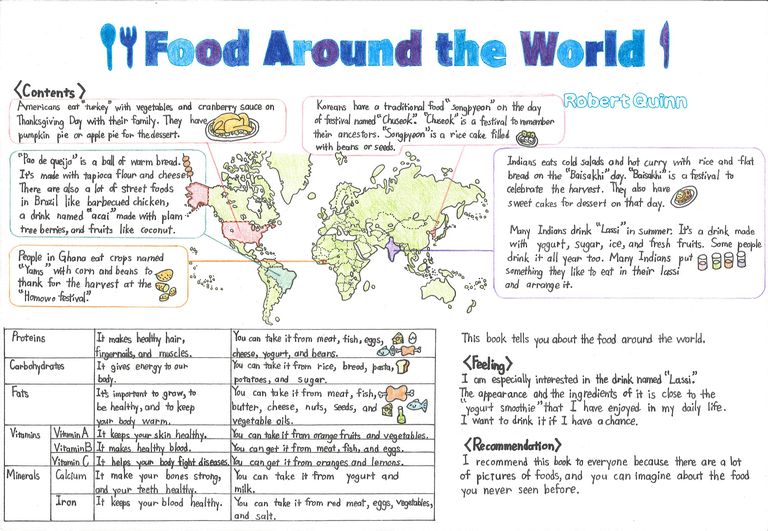 Food Around the World
Robert Quinn
<Contents>
Americans eat "turkey" with vegetables and cranberry sauce on
Thanksgiving Day with their family. They have
pumpkin pie or apple pie for the dessert.
Koreans have a traditional food "Songpyeon" on the day
of festival named "Chuseok." "Chuseok" is a festival to remember
their ancestors. "Songpyeon" is a rice cake filled
with beans or seeds.
"Pao de queijo" is a ball of warm bread.
It's made with tapioca flour and cheese.
There are also a lot of street foods
in Brazil like barbecued chicken,
a drink named "acai" made with plam
tree berries, and fruits like coconut.
People in Ghana eat crops named
"Yams" with corn and beans to
thank for the harvest at the
"Homowo festival."
Indians eats cold salads and hot curry with rice and flat
bread on the "Baisakhi" day. "Baisakhi" is a festival to
celebrate the harvest. They also have
sweet cakes for dessert on that day.
Many Indians drink "Lassi" in summer. It's a drink made
with yogurt, sugar, ice, and fresh fruits. Some people
drink it all year too. Many Indians put
something they like to eat in their lassi
and arrange it.
Proteins It makes healthy hair, You can take it from meat, fish, eggs,
fingernails, and muscles. cheese, yogurt, and beans.
Carbohydrates It gives energy to our You can take it from rice, bread, pasta,
body. potatoes, and sugar.
Fats It's important to grow, to You can take it from meat, fish,
be healthy, and to keep butter, cheese, nuts, seeds, and
your body warm. vegetable oils.
Vitamins Vitamin A It keeps your skin healthy. You can take it from orange fruits and vegetables.
Vitamin B It makes healthy blood. You can get it from meat, fish, and eggs.
Vitamin C It helps your body fight diseases. You can get it from oranges and lemons.
Minerals Calcium It make your bones strong, You can take it from yogurt and
and your teeth healthy. milk.
Iron It keeps your blood healthy. You can take it from red meat, eggs, vegetables,
and salt.
This book tells you about the food around the world.
<Feeling>
I am especially interested in the drink named "Lassi."
The appearance and the ingredients of it is close to the
"yogurt smoothie" that I have enjoyed in my daily life.
I want to drink it if I have a chance.
<Recommendation>
I recommend this book to everyone because there are a lot
of pictures of foods, and you can imagine about the food
you never seen before.